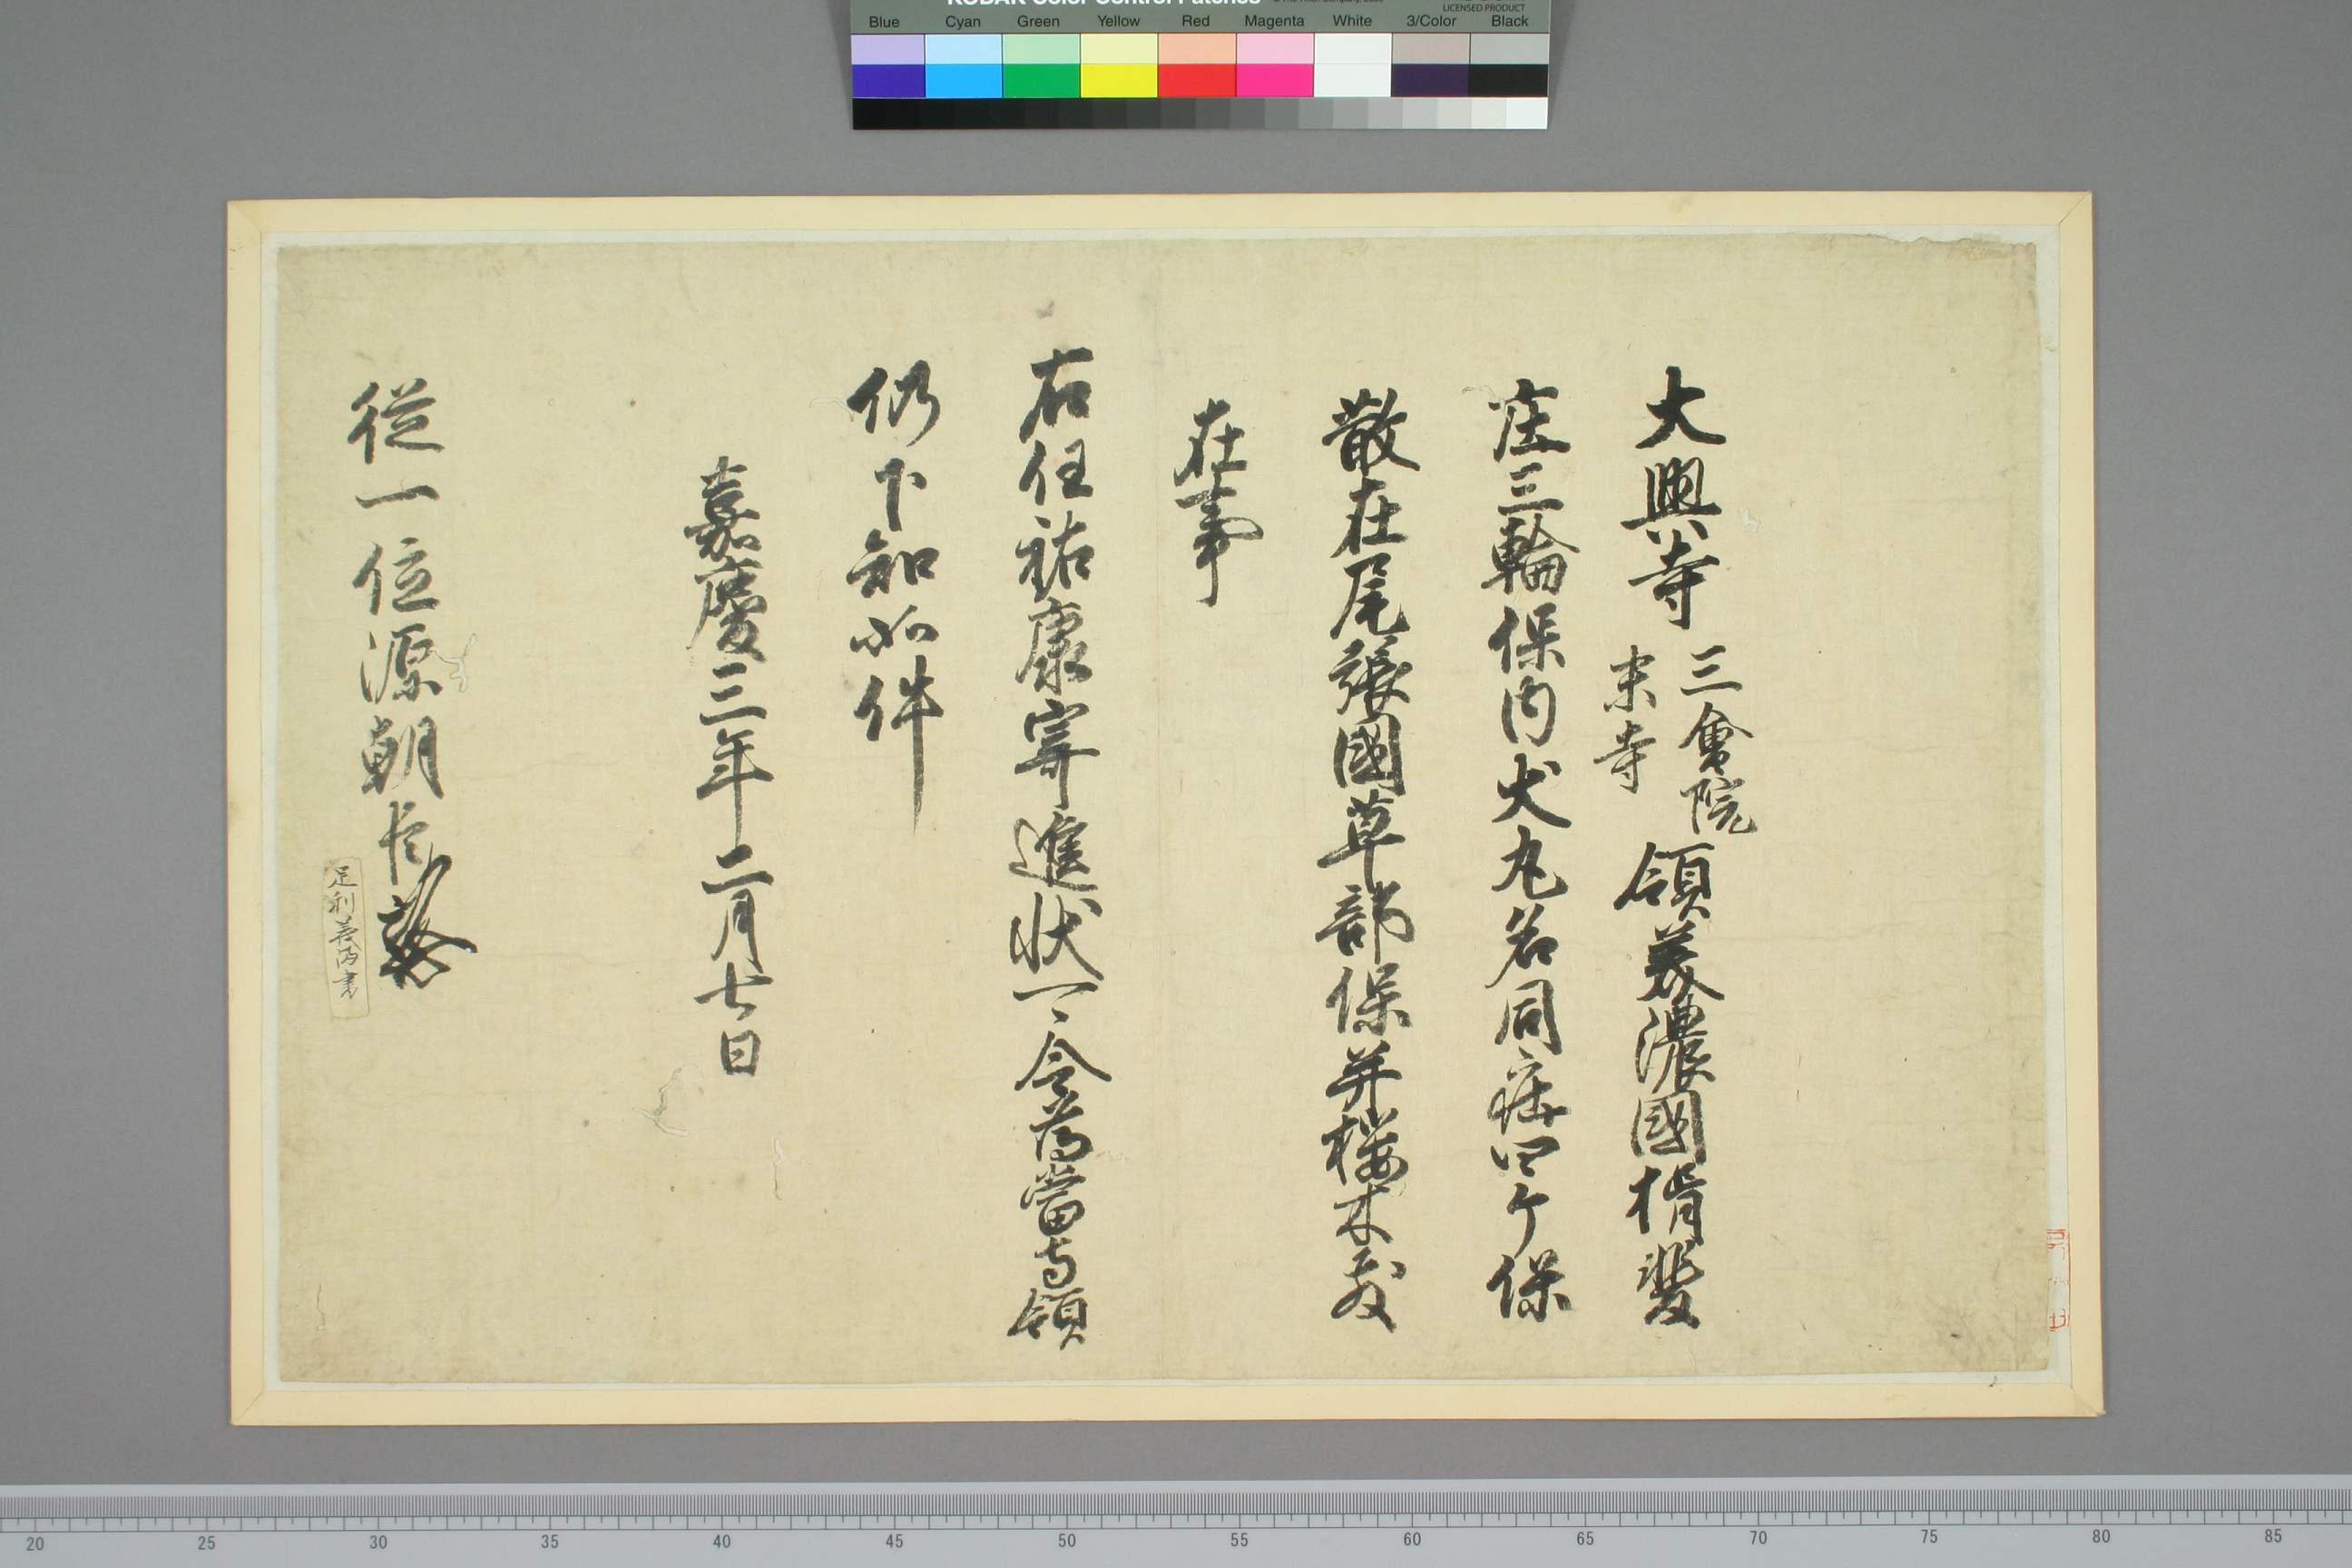 大興寺三會院末寺領美濃國揖斐
庄三輪保內犬丸名同庄四ケ保
散在尾張國草部保并櫻木散
在事
右任祐康寄進状可令為當寺領
仍下知如件
嘉慶三年二月七日
従一位源朝臣
足利義満書
KODAK Color Control Patches
LICENSED PRODUCT
Blue Cyan Green Yellow Red Magenta White 3/Color Black
20 25 30 35 40 45 50 55 60 65 70 75 80 85